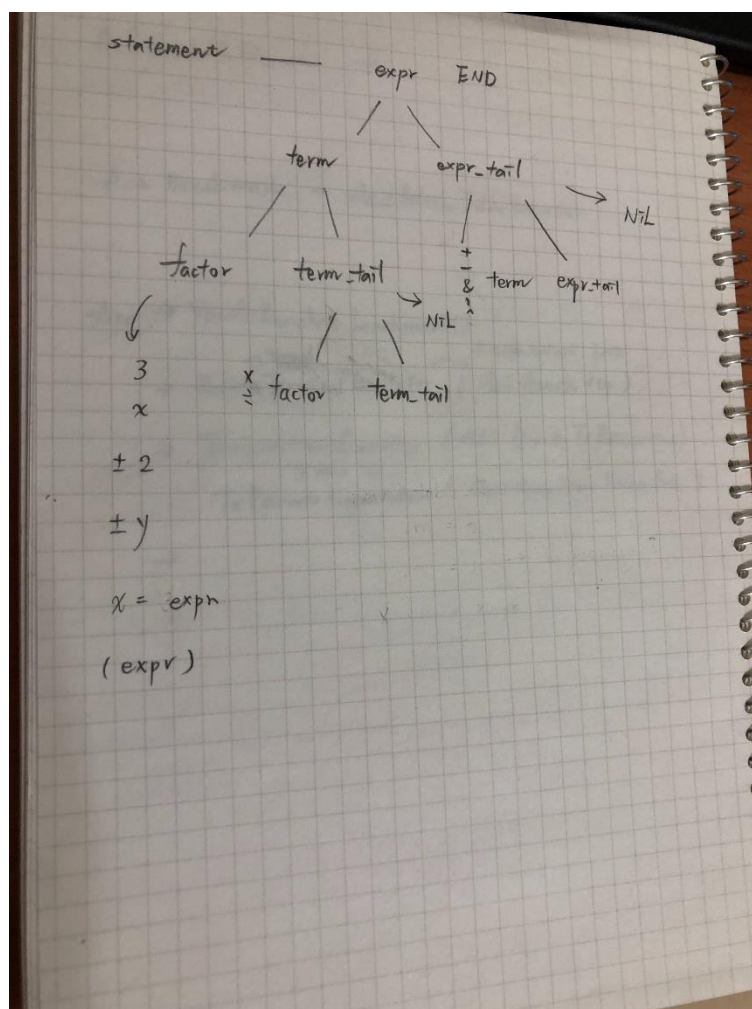 statement expr END
term expr_tail
NiL
factor term_tail
+
-
&
|
^
term expr_tail
NiL
3
x
÷
factor term_tail
x
± 2
± y
x = expr
(expr)